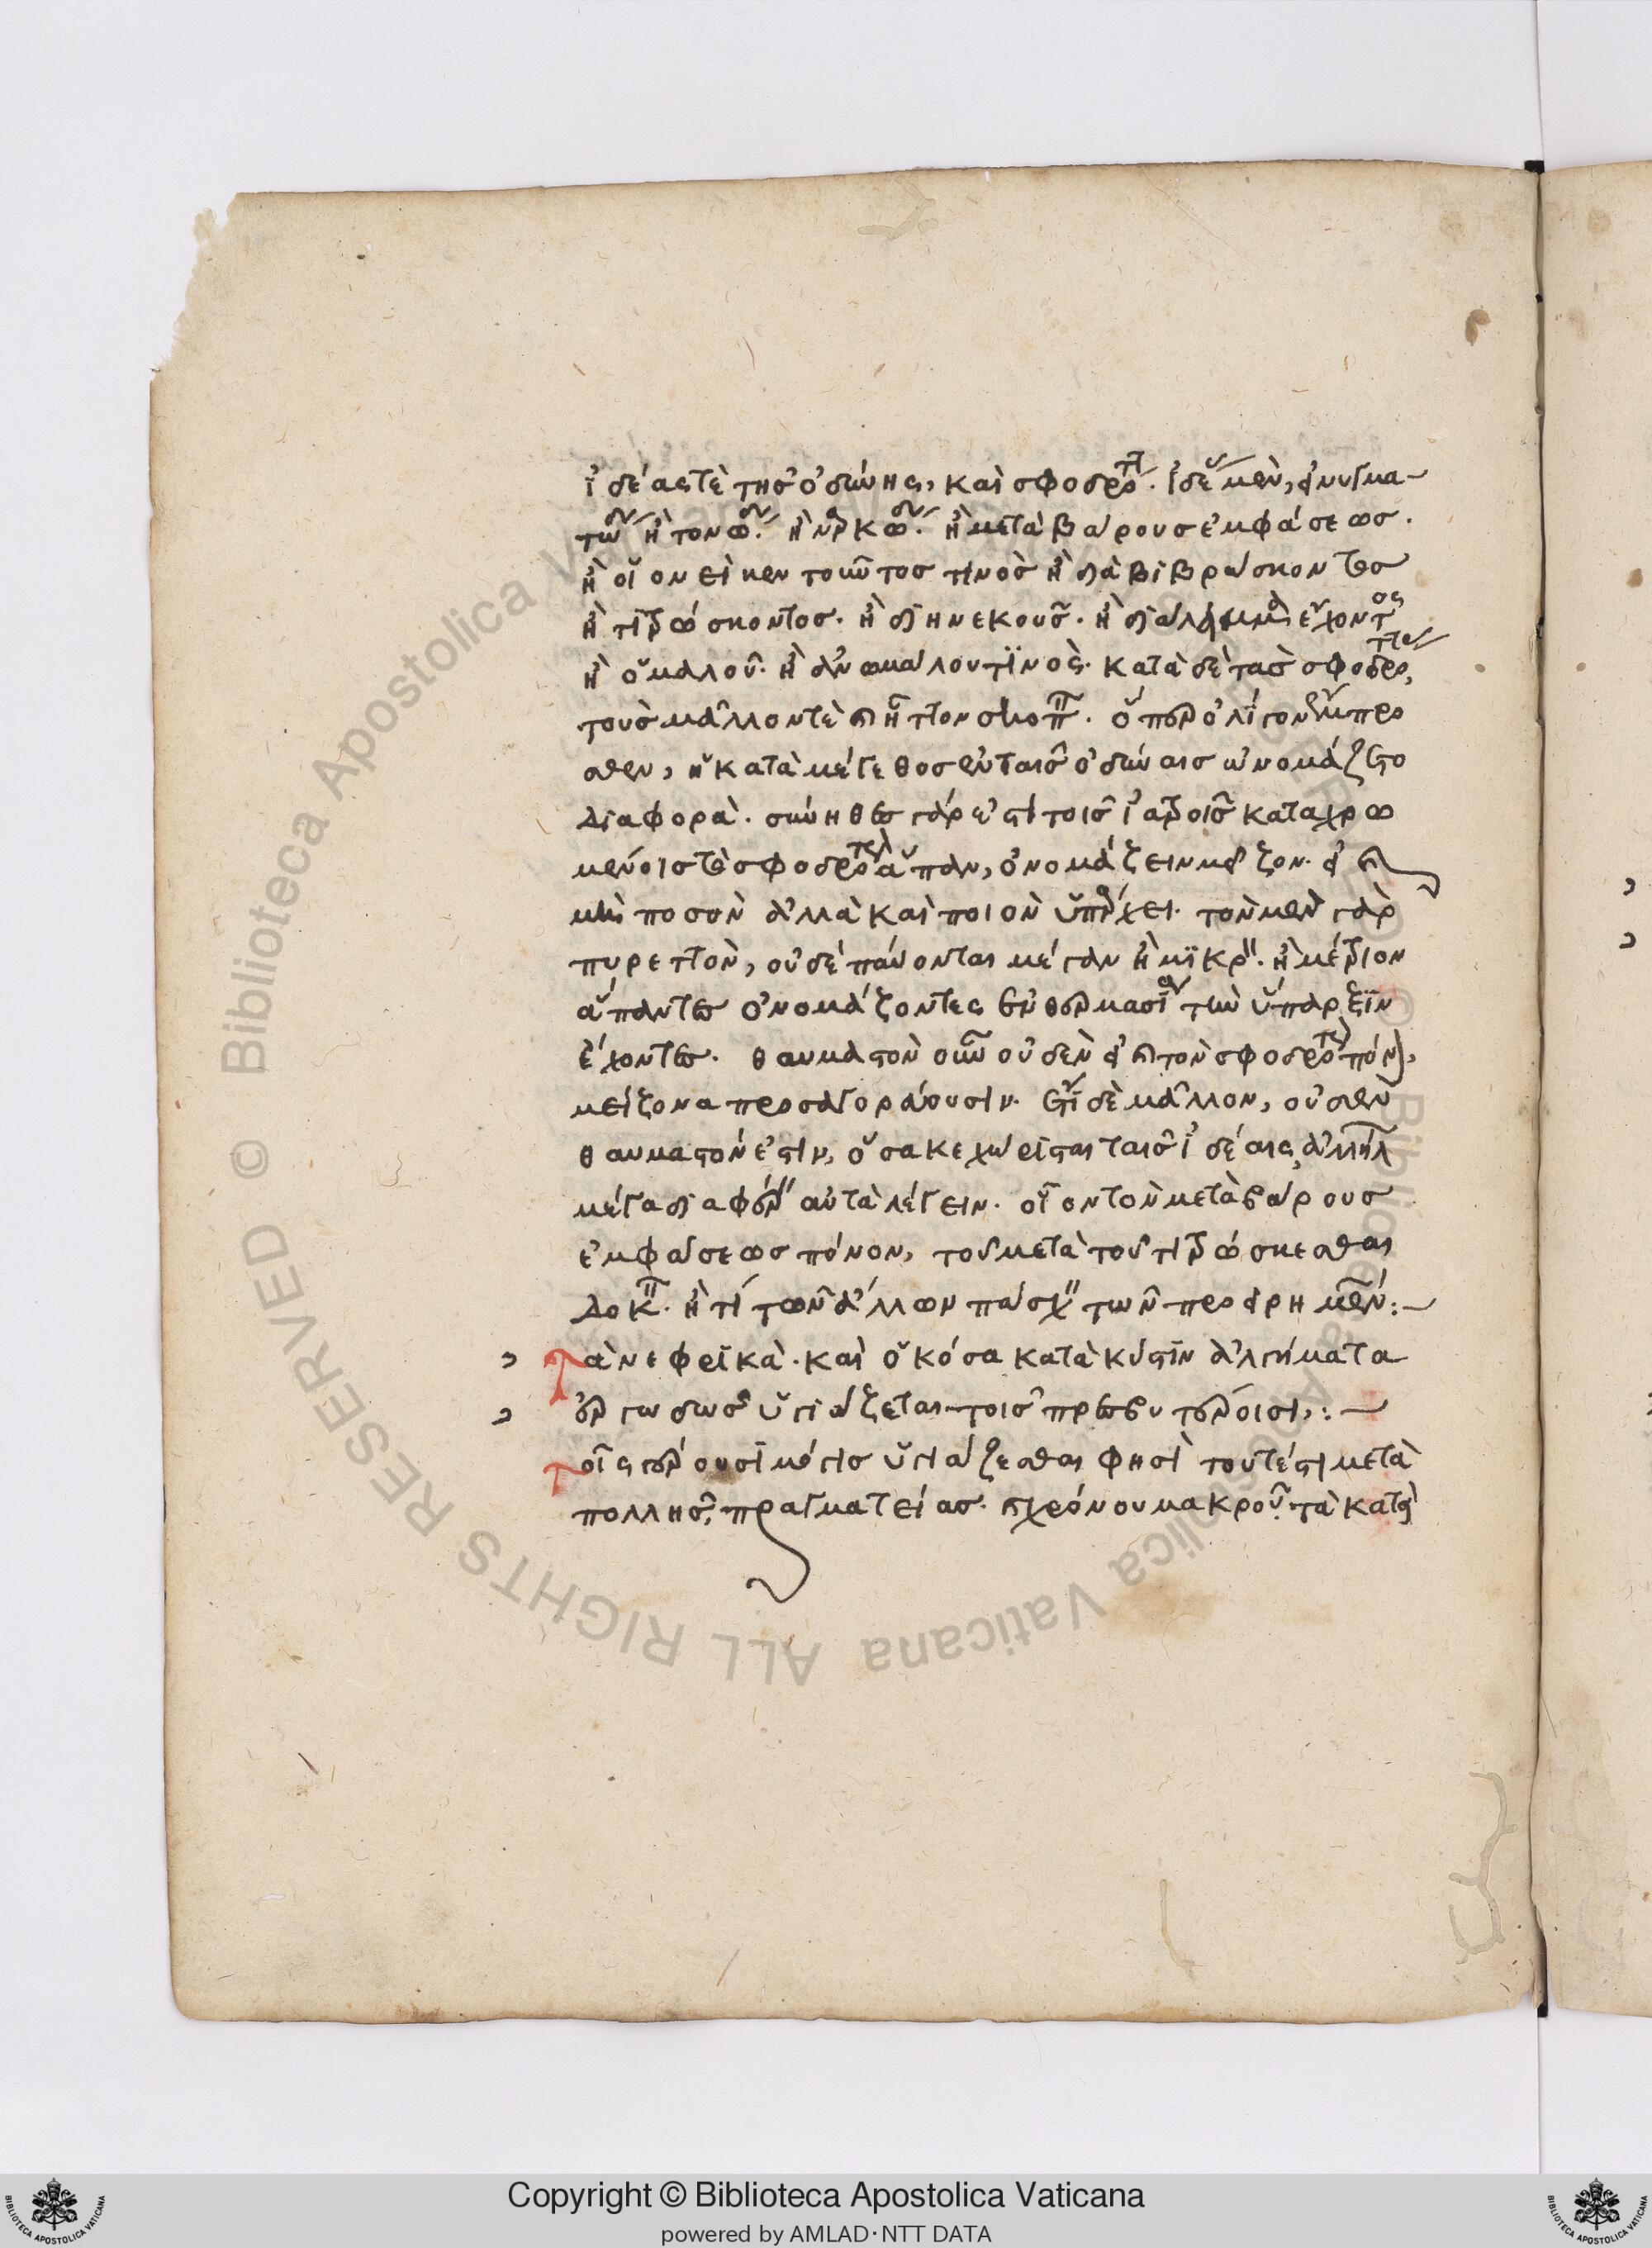 ἰδέας τὲ τῆς ὀδύνης, καὶ σφοδρότη. ἰδέας μὲν, αἱμυγμα-
των ἢ τονων. ἢ ναρκων. ἢ μετὰ βάρους ἐμφάσεως.
ἢ οἷον εἰ κεν τοιοῦτος τινὸς ἢ διαβιβρώσκοντος
ἢ τιτρώσκοντος. ἢ διηνεκοῦς. ἢ διαλείμματα ἔχοντος
ἢ ὁμαλοῦ. ἢ ἀνωμάλου τινὸς. κατὰ δὲ τὰς σφοδρότητας,
τοὺς μᾶλλόν τὲ καὶ ἧττον σκοπεῖν. ὅπερ ὀλίγον ἔμπρο
σθεν, ἡ κατὰ μέγεθος ἐν ταῖς ὀδύναις ὠνομάζετο
διαφορὰ. σύνηθες γάρ ἐστι τοῖς ἰατροῖς καταχρω
μένοις τὸ σφοδρότερον ἅπαν, ὀνομάζειν μεῖζον. εἰ καὶ
μὴ ποσὸν ἀλλὰ καὶ ποιὸν ὑπάρχει. τὸν μὲν γὰρ
πυρετὸν, οὐδέπω ὄντας μέγαν ἢ μικρὸν. ἢ μέτριον
ἅπαντες ὀνομάζοντες ἐν θερμασίᾳ τὴν ὕπαρξιν
ἔχοντες. θαυμαστὸν οὖν οὐδὲν εἰ καὶ τὸν σφοδρότερον πόνον,
μείζονα προσαγορεύουσιν. ἔτι δὲ μᾶλλον, οὐδὲν
θαυμαστόν ἐστιν, ὅσα κεχώρισται ταῖς ἰδέαις, ἀλλήλων
μέγα διαφέρειν αὐτὰ λέγειν. οἷον τὸν μετὰ βάρους
ἐμφάσεως πόνον, τοῦ μετὰ τοῦ τιτρώσκεσθαι
δοκεῖν. ἢ τί τῶν ἄλλων πάσχειν τῶν προειρημένων:-
Τὰ νεφριτικὰ. καὶ ὁκόσα κατὰ κύστιν ἀλγήματα
ἐργωδῶς ὑγιάζεται τοῖς πρεσβυτέροισι,:-
τοῖς γέρουσι μόγις ὑγιάζεσθαι φησὶ τουτέστι μετὰ
πολλῆς, πραγματείας. καὶ χρόνου μακροῦ. τὰ κατὰ
Copyright © Biblioteca Apostolica Vaticana
powered by AMLAD·NTT DATA